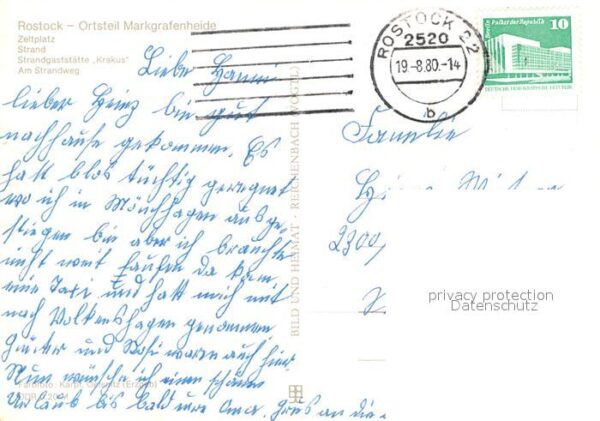 Rostock – Ortsteil Markgrafenheide
Zeltplatz
Strand
Strandgaststätte „Krakus“
Am Strandweg
ROSTOCK 22
2520
19.-8.80.-14
b
Berlin Palast der Republik
10
DEUTSCHE DEMOKRATISCHE REPUBLIK
Liebe Hanni
lieber Heinz bin gut
nachhause gekommen. Es
hatt blos tüchtig geregnet
wo ich in Mönchhagen ausge-
stiegen bin aber ich brauchte
nicht weit laufen da kam
eine Taxi und hatt mich mit
nach Volkenshagen genommen
Günter und Rosi waren auch hier
Nun wünsche ich einen schönen
Urlaub bis bald eure Oma. Grüs an die
Familie
2300
BILD UND HEIMAT · REICHENBACH (VOGTL)
privacy protection
Datenschutz